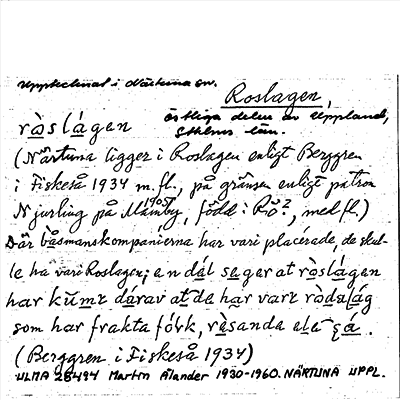 Upptecknat i Närtuna sn.
Roslagen,
östliga delen av Uppland,
Sthlms län.
ròslágen
(Närtuna ligger i Roslagen enligt Berggren
i Fiskeså 1934 m.fl., på gränsen enligt patron
Njurling på Mälmby, 1905 född i Rö?, med fl.)
Där båsmanskompanierna har vari placérade, de skul-
le ha vari Roslagen; en dál sager at ròslágen
har kumt dárav at de har vart ròdslág
som har frakta fólk, ràsanda ele så.
(Berggren i Fiskeså 1934)
ULMA 28494 Martin Ålander 1930-1960. NÄRTUNA UPPL.